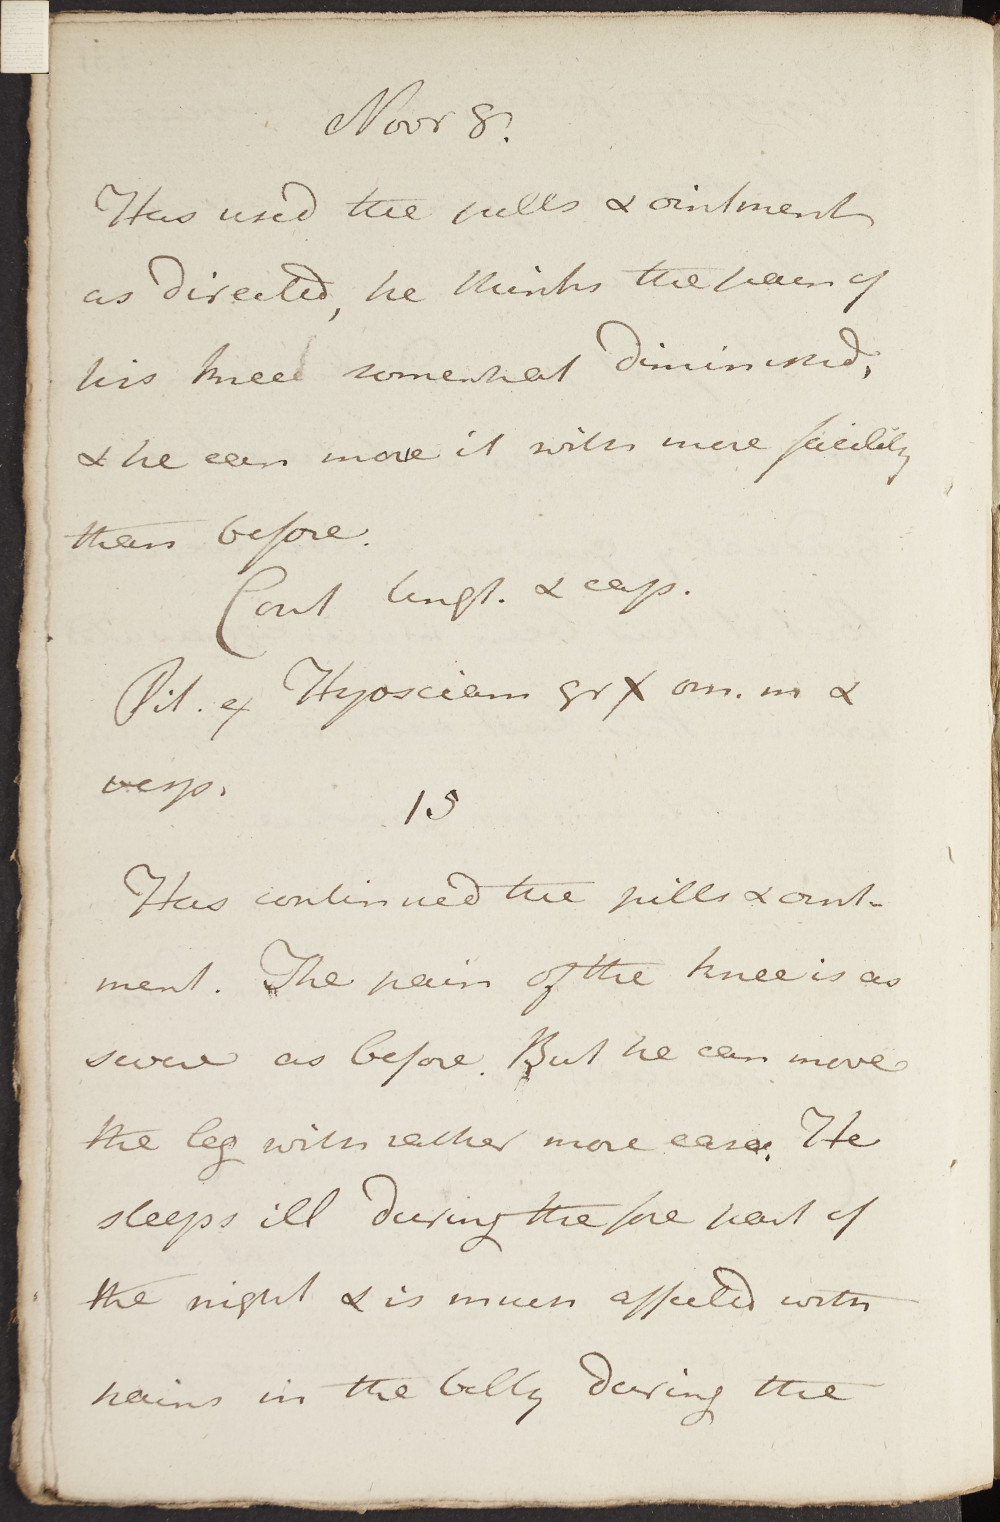 Novr 8.
Has used the pills & ointment
as directed, he thinks the pain of
his knee somewhat diminished,
& he can move it with more facility
than before.
Cont Ungt. & cap.
Pil. ex Hyosciam gr X om. m &
vesp.
15
Has continued the pills & oint-
ment. The pain of the knee is as
severe as before. But he can move
the leg with rather more ease. He
sleeps ill during the fore part of
the night & is much affected with
pains in the belly during the